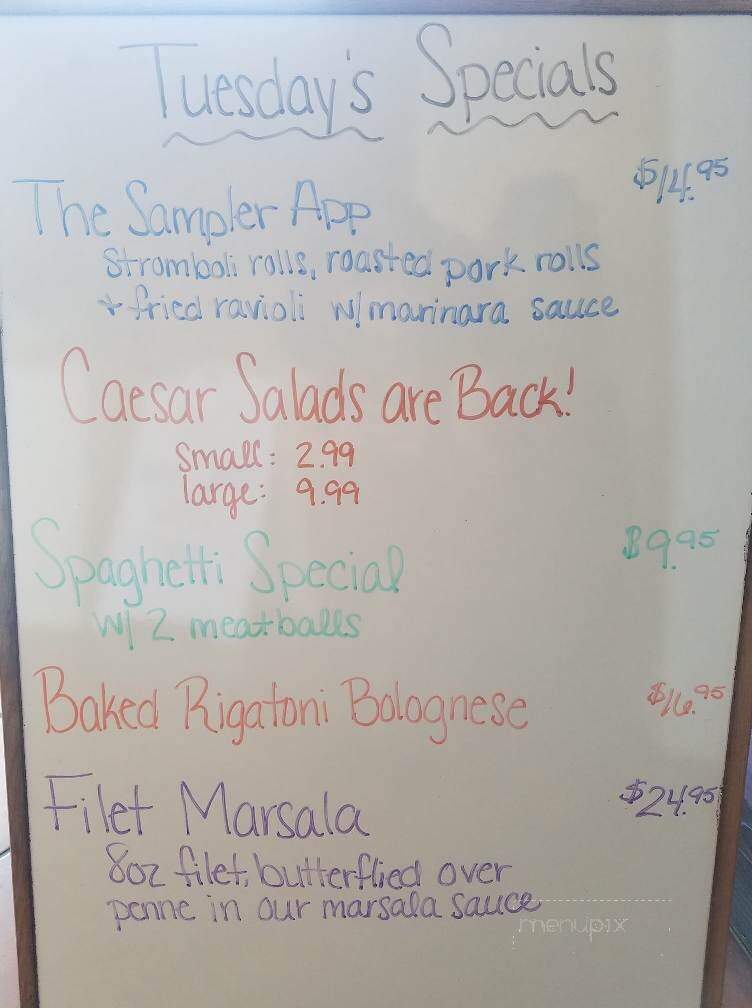 Tuesday's Specials
The Sampler App $14.95
Stromboli rolls, roasted pork rolls
+ fried ravioli w/ marinara sauce
Caesar Salads are Back!
small: 2.99
large: 9.99
Spaghetti Special $9.95
w/ 2 meatballs
Baked Rigatoni Bolognese $16.95
Filet Marsala $24.95
8oz filet, butterflied over
penne in our marsala sauce
menupix